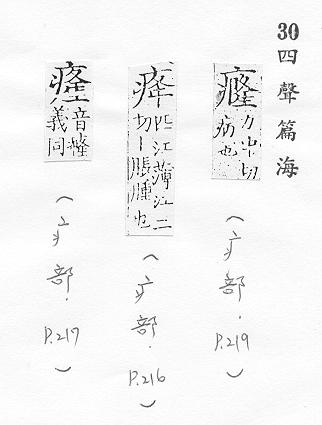 30 四聲篇海
癃 力中切
病也
(疒部.P.219)
匹江薄江二
切丨脹腫也
(疒部.P.216)
音癃
義同
(疒部.P.217)